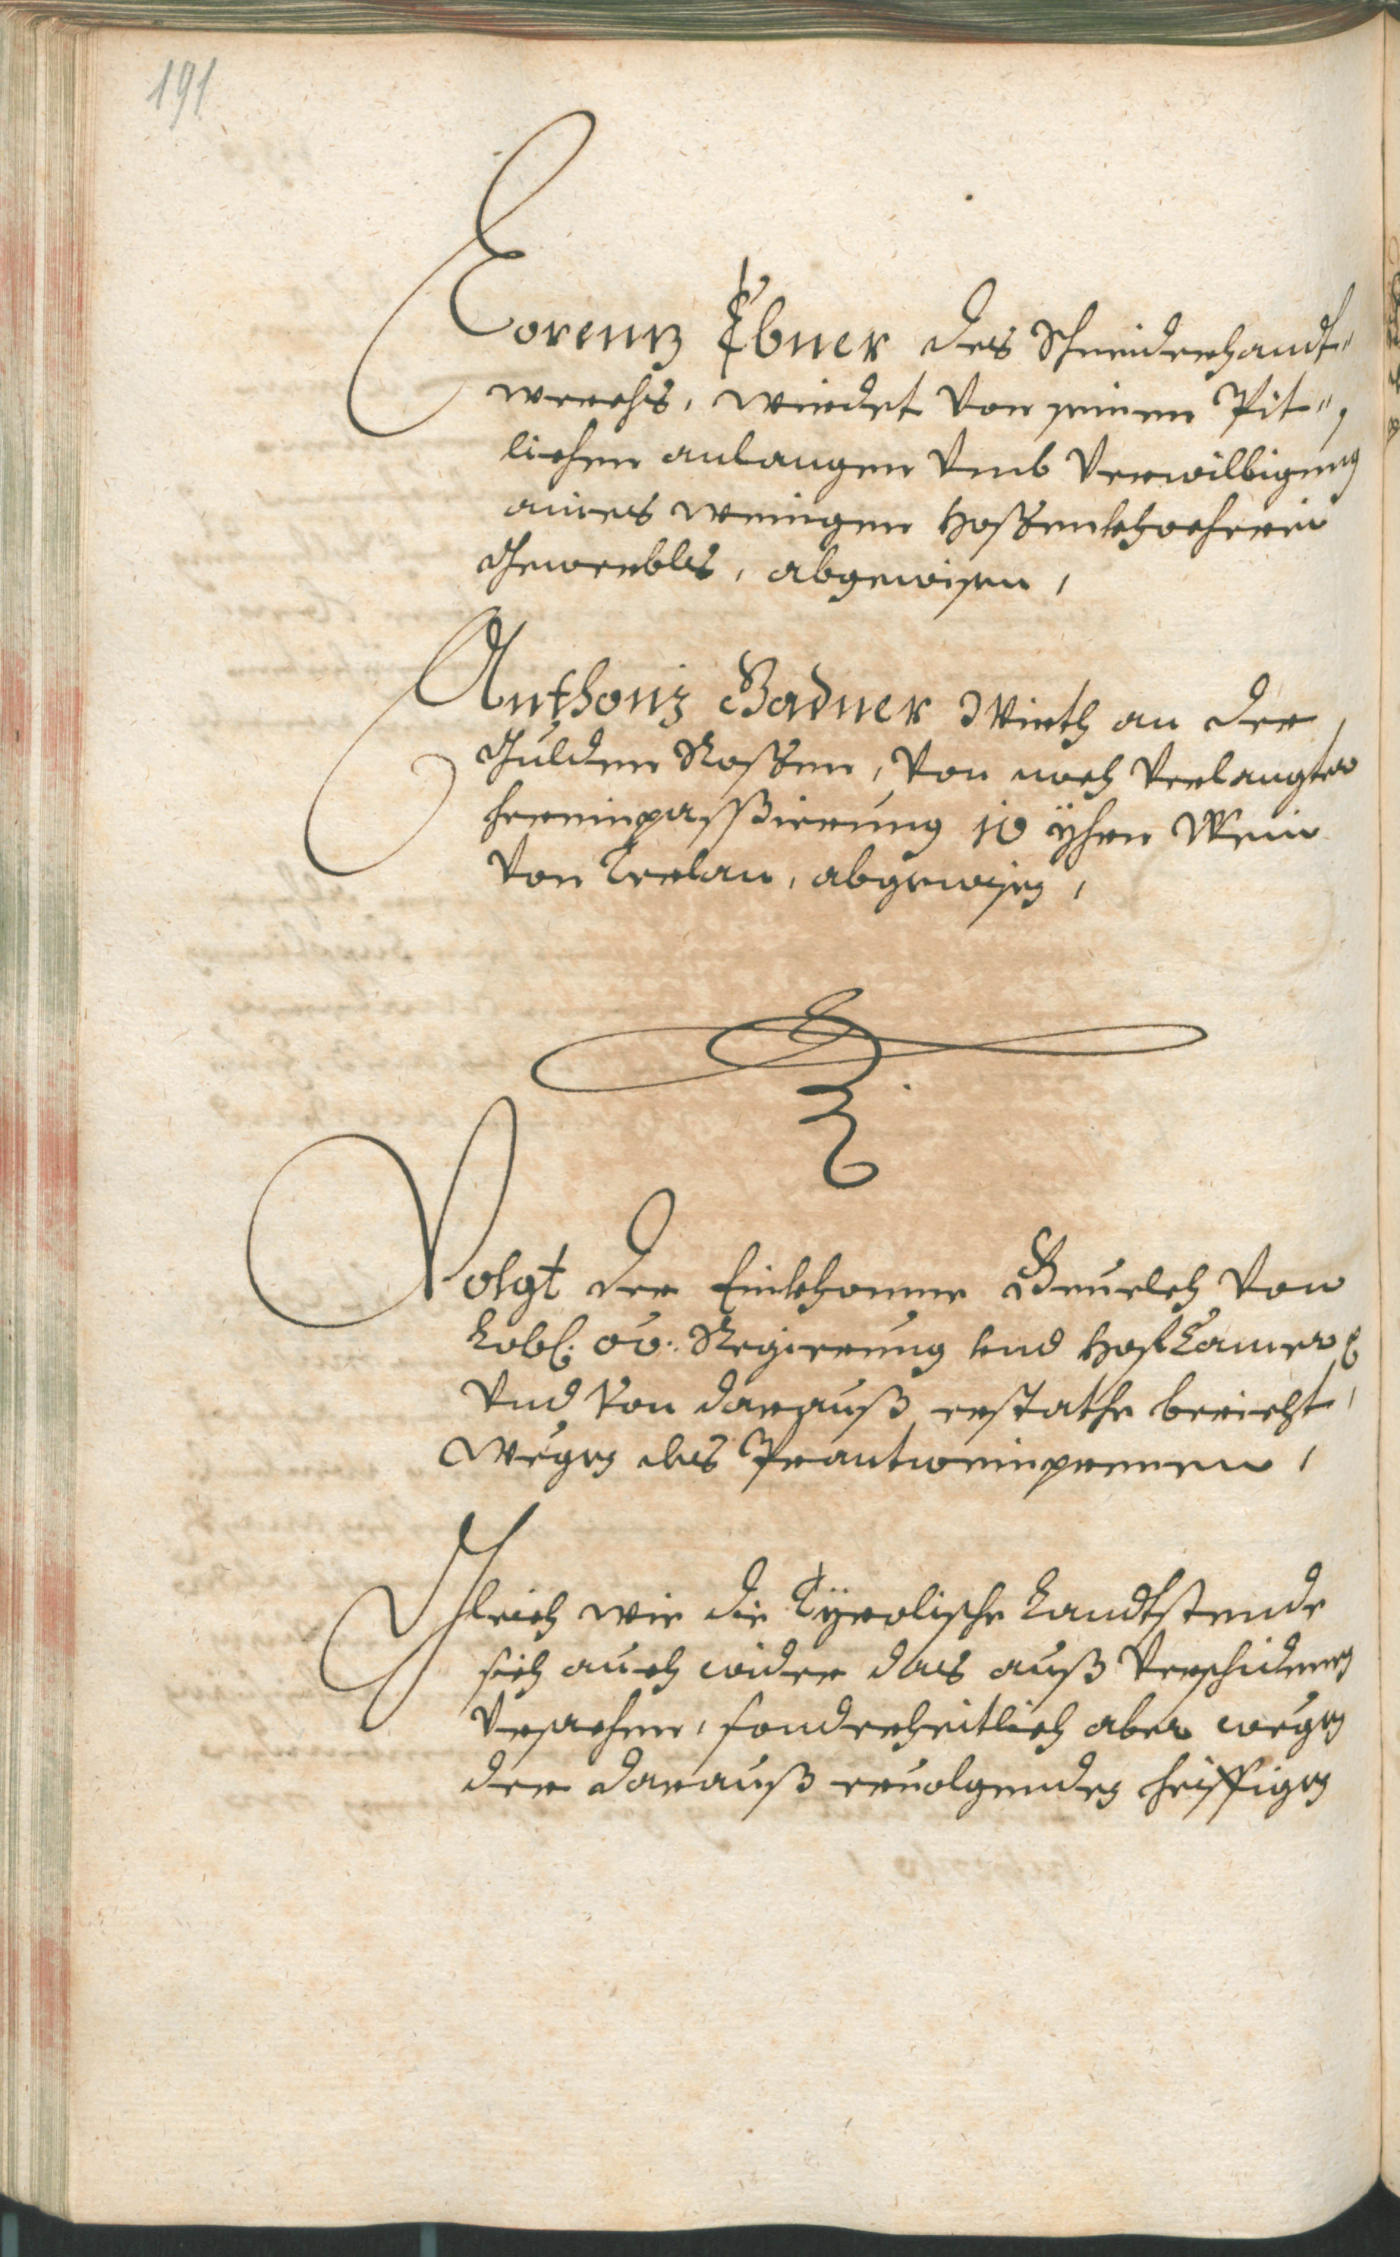 191
Lorenz Ebner des Schneiderhandt-
werchs, wirdet von seinem Pit-
lichen anlangen vmb verwilligung
aines weinigen Hossenkhocherein
Gewerbls, abgewisen,
Anthoni Gadner Wirth an der
Gulden Rossen, von noch verlangter
hereinpassierung 10 Ÿhrn Wein
von Terlan, abgewisen,
Volgt der Einkhomne Beuelch von
Lobl. oö. Regierung und Hof Camer
vnd von darauß erstathe bericht,
wegen des Prantweinprenen,
Gleich wie die Tÿrolische Landtstende
sich auch wider das auß verschidenen
vrsachen, sonderheitlich aber wegen
der darauß ervolgenden heiffigen